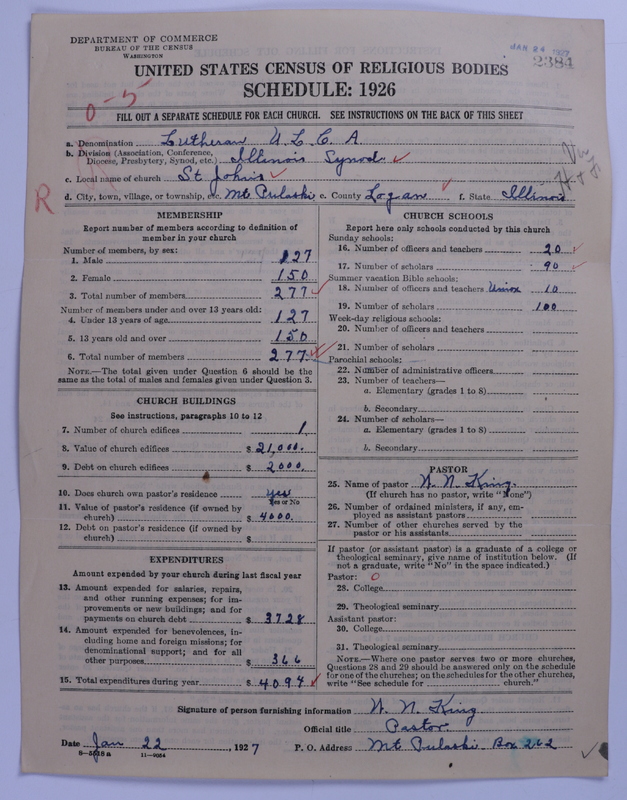 DEPARTMENT OF COMMERCE
BUREAU OF THE CENSUS
WASHINGTON
JAN 24 1927
2384
UNITED STATES CENSUS OF RELIGIOUS BODIES
SCHEDULE: 1926
0-5
FILL OUT A SEPARATE SCHEDULE FOR EACH CHURCH. SEE INSTRUCTIONS ON THE BACK OF THIS SHEET
a. Denomination Lutheran U. L. C. A.
b. Division (Association, Conference, Diocese, Presbytery, Synod, etc.) Illinois Synod
c. Local name of church St Johns
R
d. City, town, village, or township, etc. Mt Pulaski e. County Logan f. State Illinois
MEMBERSHIP
Report number of members according to definition of
member in your church
Number of members, by sex:
1. Male 127
2. Female 150
3. Total number of members 277
Number of members under and over 13 years old:
4. Under 13 years of age 127
5. 13 years old and over 150
6. Total number of members 277
NOTE.—The total given under Question 6 should be the
same as the total of males and females given under Question 3.
CHURCH BUILDINGS
See instructions, paragraphs 10 to 12
7. Number of church edifices 1
8. Value of church edifices $ 21,000.
9. Debt on church edifices $ 2000.
10. Does church own pastor's residence yes
Yes or No
11. Value of pastor's residence (if owned by
church) $ 4000.
12. Debt on pastor's residence (if owned by
church) $
EXPENDITURES
Amount expended by your church during last fiscal year
13. Amount expended for salaries, repairs,
and other running expenses; for im-
provements or new buildings; and for
payments on church debt $ 3728
14. Amount expended for benevolences, in-
cluding home and foreign missions; for
denominational support; and for all
other purposes $ 366
15. Total expenditures during year $ 4094
CHURCH SCHOOLS
Report here only schools conducted by this church
Sunday schools:
16. Number of officers and teachers 20
17. Number of scholars 90
Summer vacation Bible schools:
18. Number of officers and teachers Union 10
19. Number of scholars 100
Week-day religious schools:
20. Number of officers and teachers
21. Number of scholars
Parochial schools:
22. Number of administrative officers
23. Number of teachers—
a. Elementary (grades 1 to 8)
b. Secondary
24. Number of scholars—
a. Elementary (grades 1 to 8)
b. Secondary
PASTOR
25. Name of pastor W. N. King.
(If church has no pastor, write "None")
26. Number of ordained ministers, if any, em-
ployed as assistant pastors
27. Number of other churches served by the
pastor or his assistants
If pastor (or assistant pastor) is a graduate of a college or
theological seminary, give name of institution below. (If
not a graduate, write "No" in the space indicated.)
Pastor: 0
28. College
29. Theological seminary
Assistant pastor:
30. College
31. Theological seminary
NOTE.—Where one pastor serves two or more churches,
Questions 28 and 29 should be answered only on the schedule
for one of the churches; on the schedules for the other churches,
write "See schedule for church."
Signature of person furnishing information W. N. King
Official title Pastor.
Date Jan 22, 1927 P. O. Address Mt Pulaski Box 262
8-5518a 11-9054